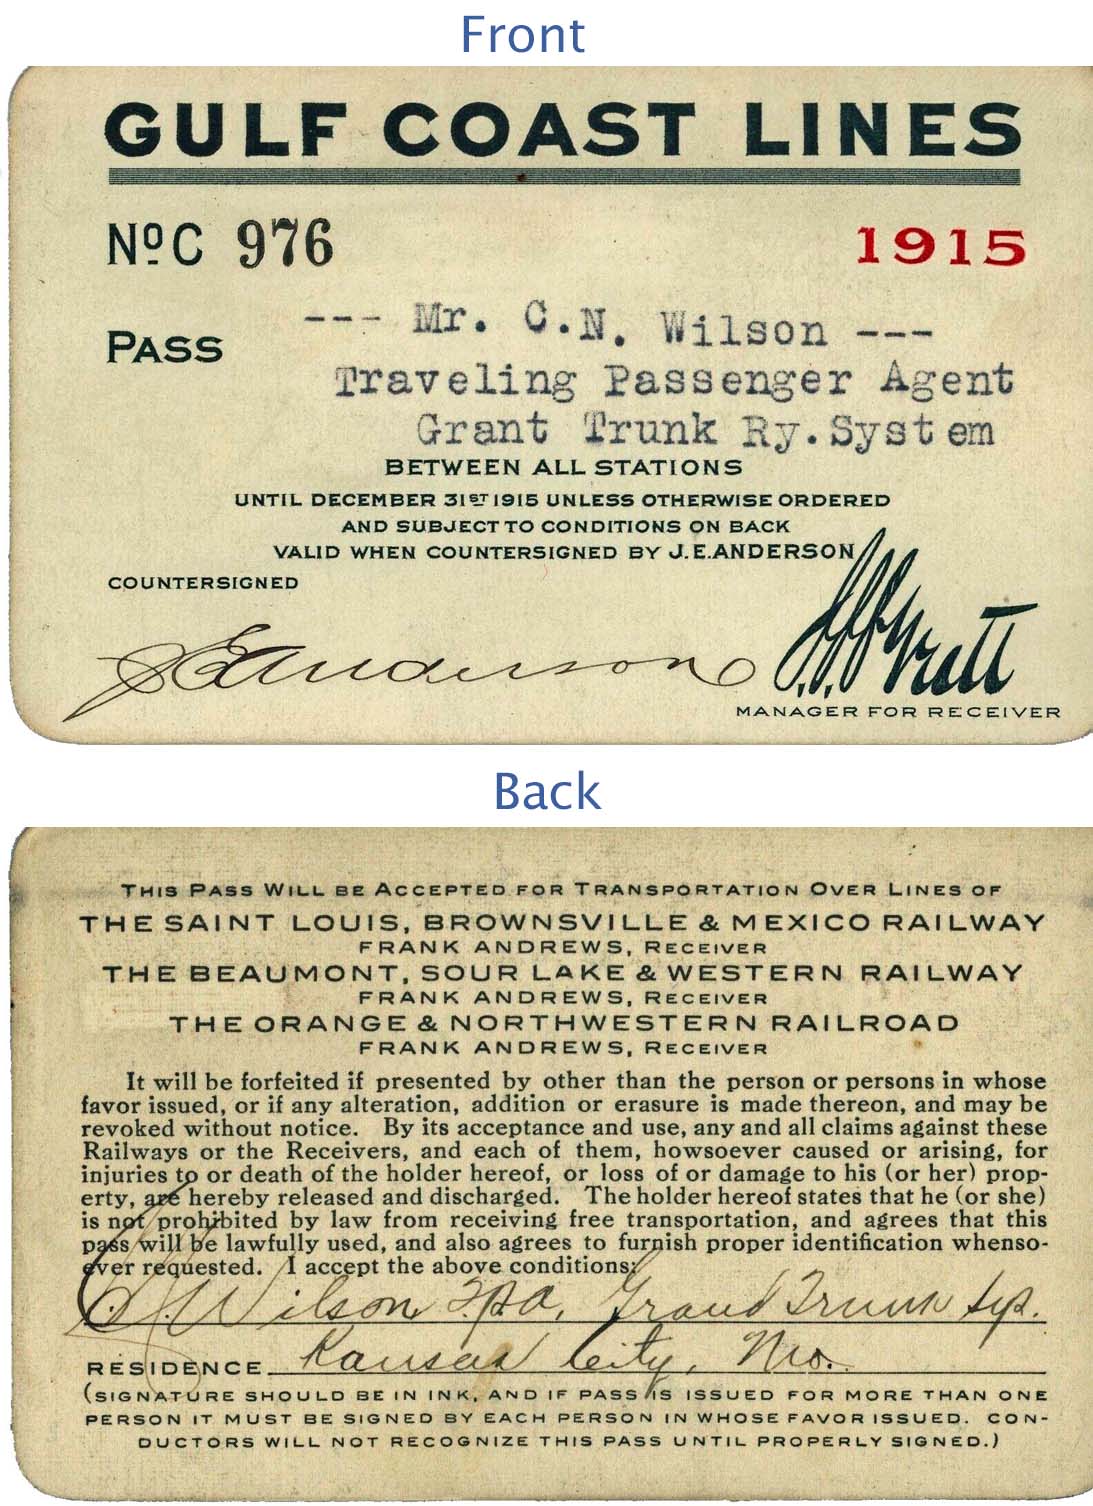 Front
GULF COAST LINES
Nº C 976
1915
PASS
--- Mr. C.N. Wilson ---
Traveling Passenger Agent
Grant Trunk Ry. System
BETWEEN ALL STATIONS
UNTIL DECEMBER 31ST 1915 UNLESS OTHERWISE ORDERED
AND SUBJECT TO CONDITIONS ON BACK
VALID WHEN COUNTERSIGNED BY J.E.ANDERSON
COUNTERSIGNED
J E Anderson
MANAGER FOR RECEIVER
Back
THIS PASS WILL BE ACCEPTED FOR TRANSPORTATION OVER LINES OF
THE SAINT LOUIS, BROWNSVILLE & MEXICO RAILWAY
FRANK ANDREWS, RECEIVER
THE BEAUMONT, SOUR LAKE & WESTERN RAILWAY
FRANK ANDREWS, RECEIVER
THE ORANGE & NORTHWESTERN RAILROAD
FRANK ANDREWS, RECEIVER
It will be forfeited if presented by other than the person or persons in whose
favor issued, or if any alteration, addition or erasure is made thereon, and may be
revoked without notice. By its acceptance and use, any and all claims against these
Railways or the Receivers, and each of them, howsoever caused or arising, for
injuries to or death of the holder hereof, or loss of or damage to his (or her) prop-
erty, are hereby released and discharged. The holder hereof states that he (or she)
is not prohibited by law from receiving free transportation, and agrees that this
pass will be lawfully used, and also agrees to furnish proper identification whenso-
ever requested. I accept the above conditions:
C.N. Wilson T.P.A. Grand Trunk Sys.
RESIDENCE Kansas City, Mo.
(SIGNATURE SHOULD BE IN INK, AND IF PASS IS ISSUED FOR MORE THAN ONE
PERSON IT MUST BE SIGNED BY EACH PERSON IN WHOSE FAVOR ISSUED. CON-
DUCTORS WILL NOT RECOGNIZE THIS PASS UNTIL PROPERLY SIGNED.)